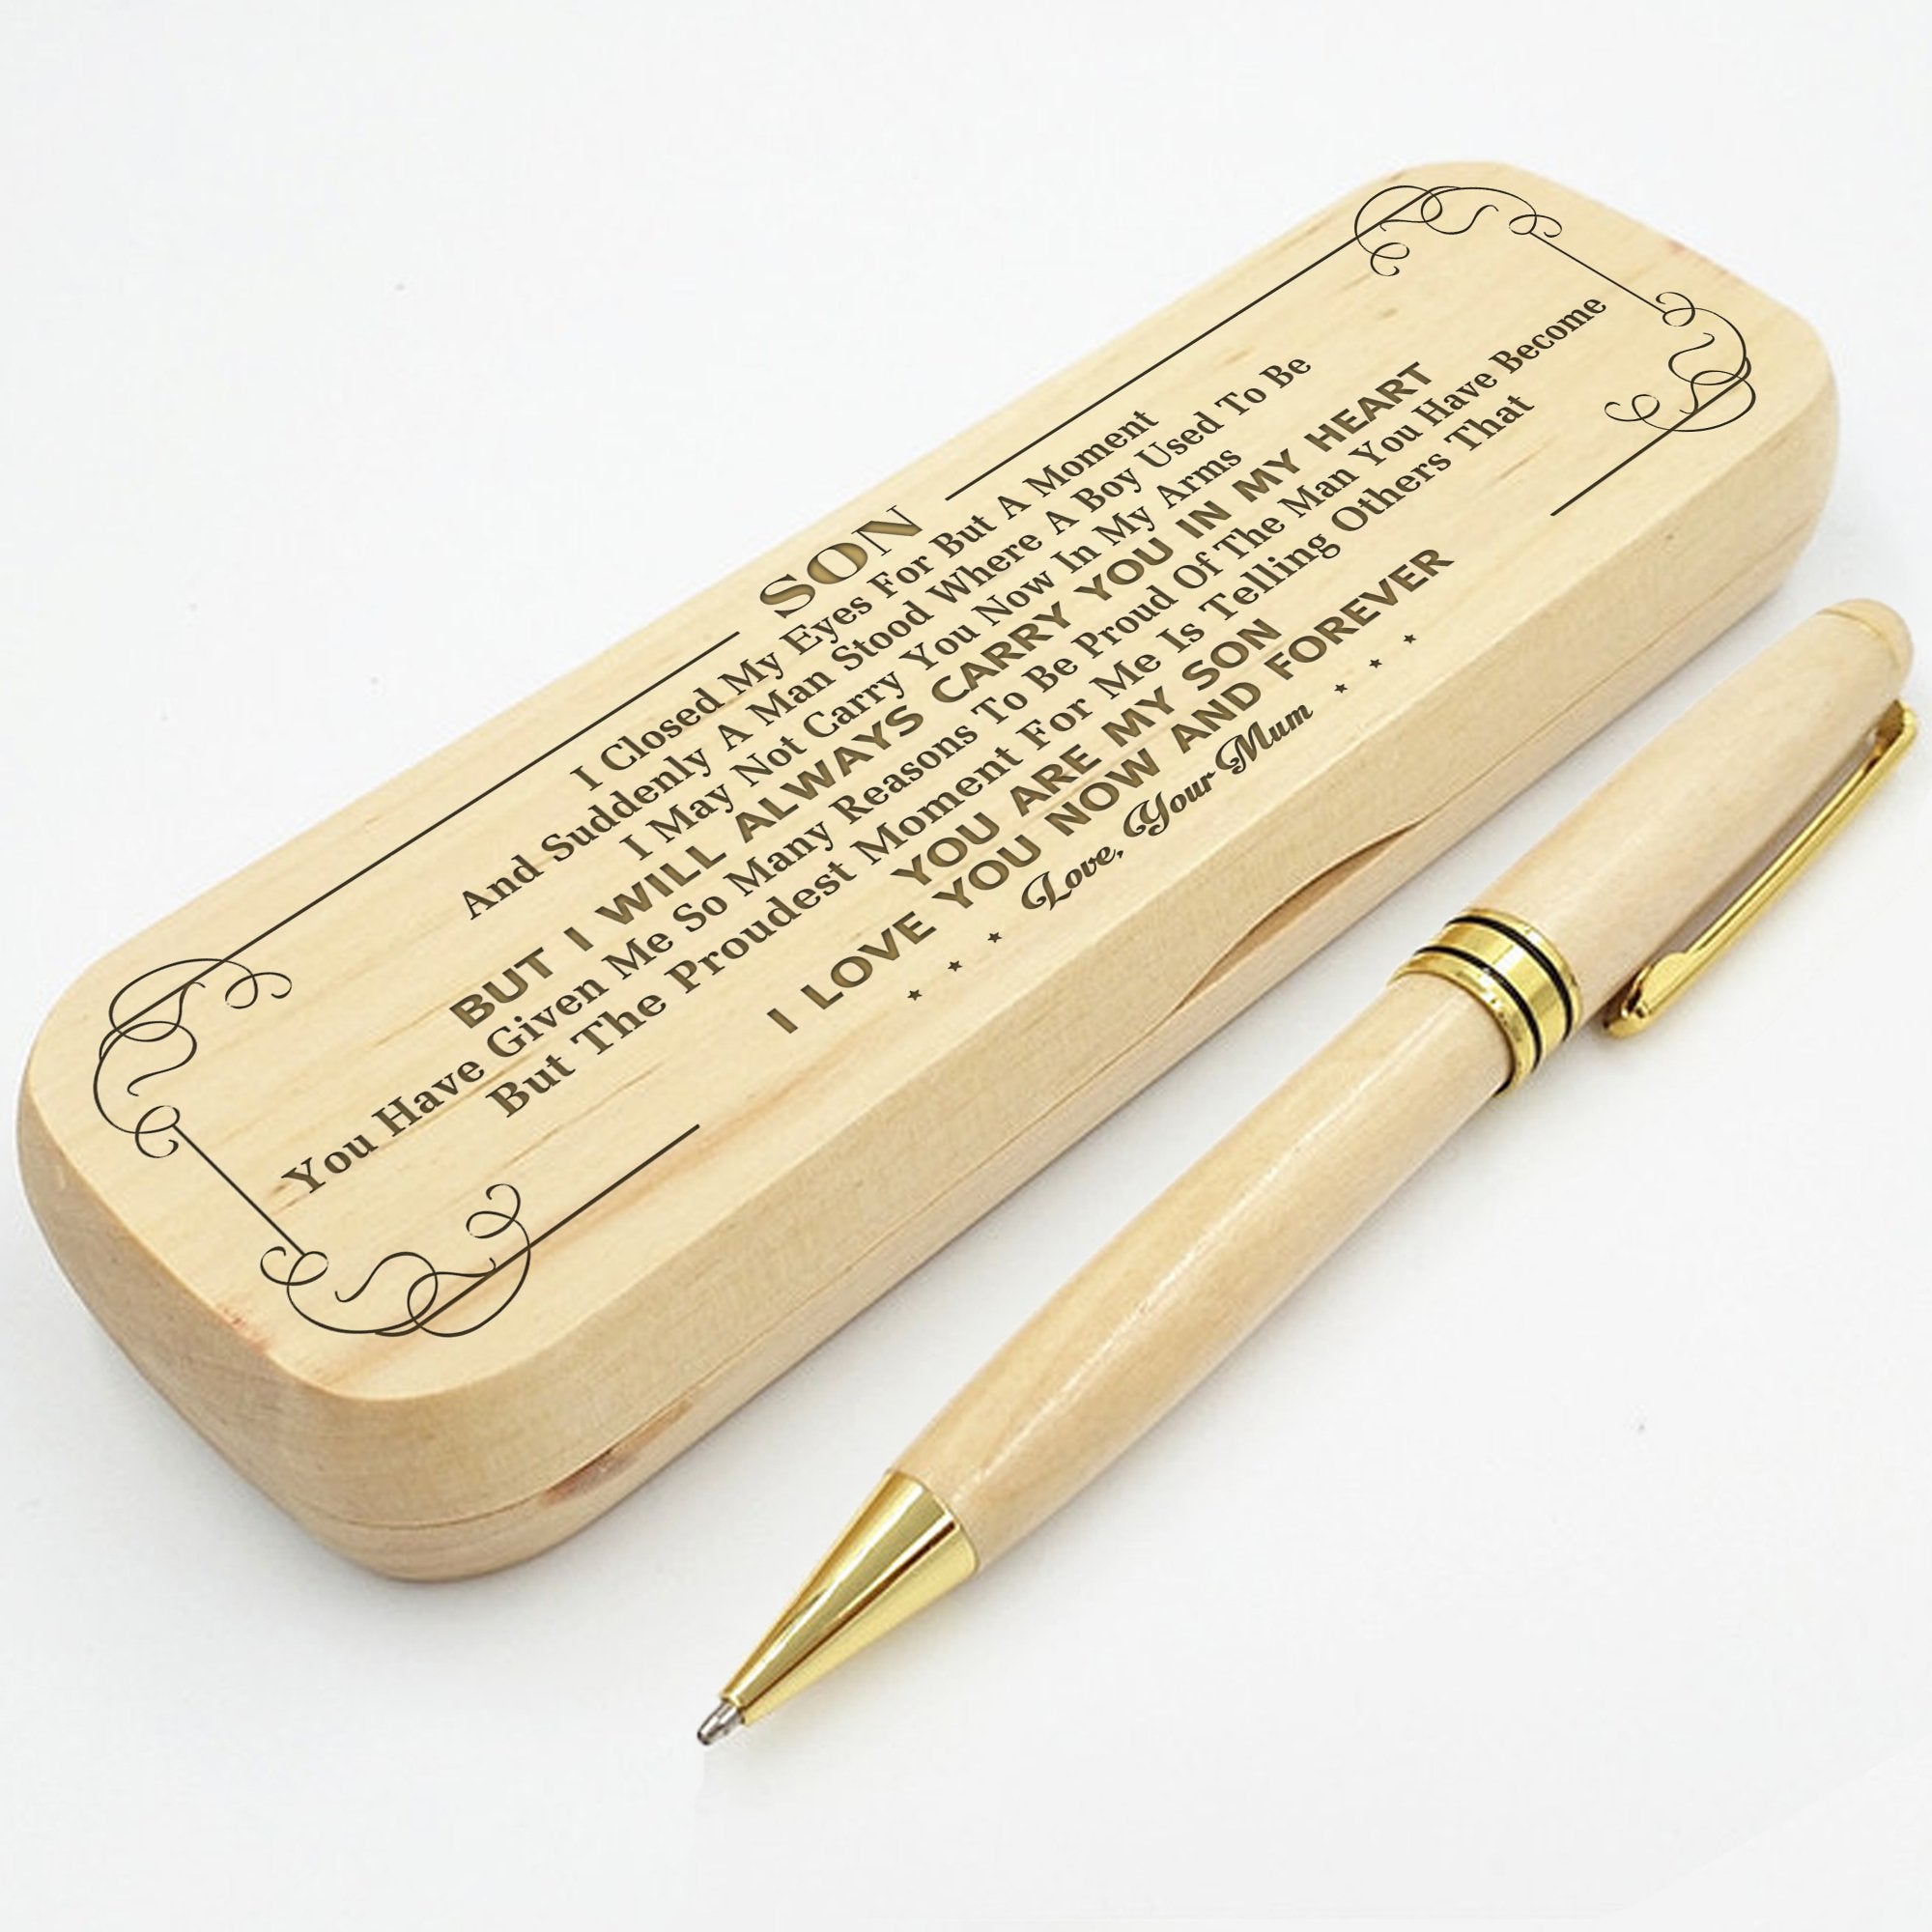 SON
I Closed My Eyes For But A Moment
And Suddenly A Man Stood Where A Boy Used To Be
I May Not Carry You Now In My Arms
BUT I WILL ALWAYS CARRY YOU IN MY HEART
You Have Given Me So Many Reasons To Be Proud Of The Man You Have Become
But The Proudest Moment For Me Is Telling Others That
YOU ARE MY SON
I LOVE YOU NOW AND FOREVER
Love, Your Mum